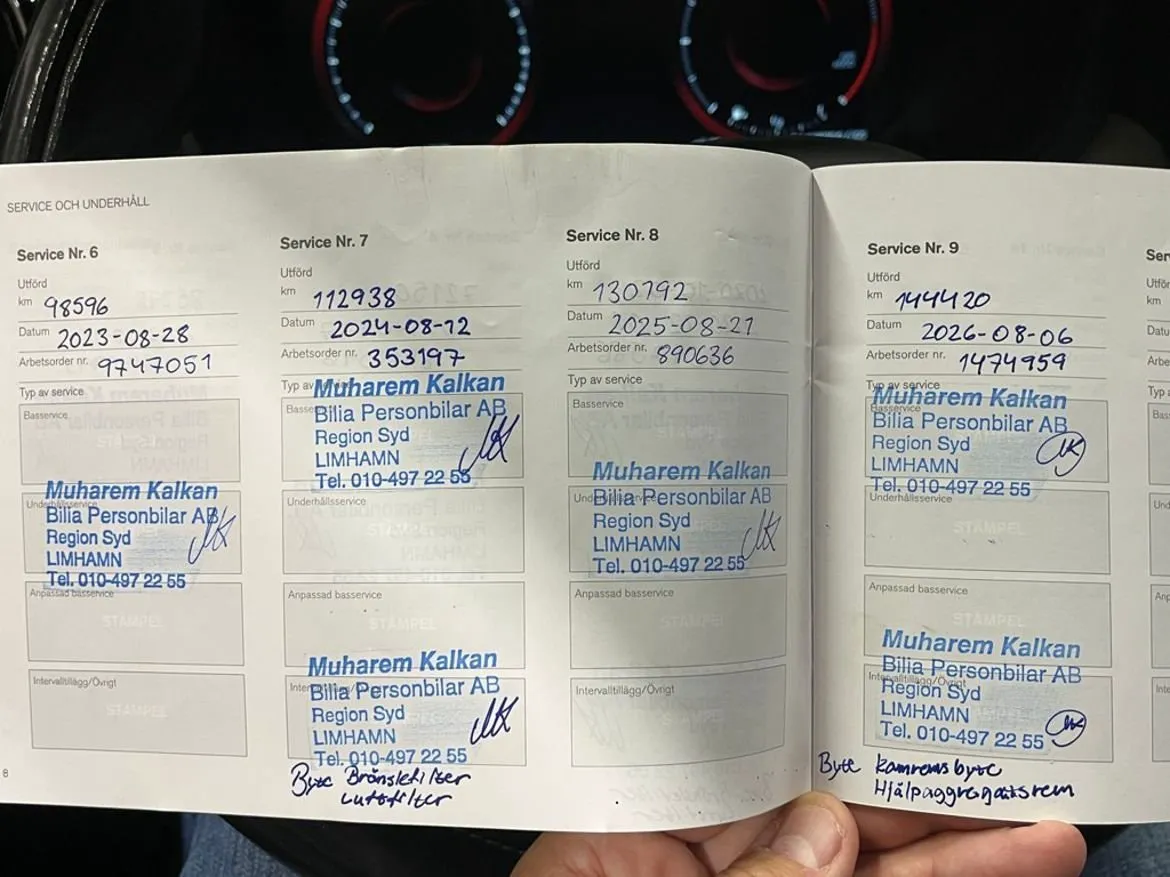 SERVICE OCH UNDERHÅLL
Service Nr. 6
Utförd
km 98596
Datum 2023-08-28
Arbetsorder nr. 9747051
Typ av service
Basservice
Muharem Kalkan
Underhållsservice
Bilia Personbilar AB
Region Syd
LIMHAMN
Tel. 010-497 22 55
Anpassad basservice
STÄMPEL
Intervalltillägg/Övrigt
STÄMPEL
8
Service Nr. 7
Utförd
km 112938
Datum 2024-08-12
Arbetsorder nr. 353197
Typ av service
Muharem Kalkan
Basservice
Bilia Personbilar AB
Region Syd
LIMHAMN
Tel. 010-497 22 55
Underhållsservice
Anpassad basservice
STÄMPEL
Muharem Kalkan
Intervalltillägg/Övrigt
Bilia Personbilar AB
Region Syd
LIMHAMN
Tel. 010-497 22 55
Byte Bränslefilter
Luftfilter
Service Nr. 8
Utförd
km 130792
Datum 2025-08-21
Arbetsorder nr. 890636
Typ av service
Basservice
Muharem Kalkan
Underhållsservice
Bilia Personbilar AB
Region Syd
LIMHAMN
Tel. 010-497 22 55
Anpassad basservice
STÄMPEL
Intervalltillägg/Övrigt
Service Nr. 9
Utförd
km 144420
Datum 2026-08-06
Arbetsorder nr. 1474959
Typ av service
Muharem Kalkan
Basservice
Bilia Personbilar AB
Region Syd
LIMHAMN
Tel. 010-497 22 55
Underhållsservice
STÄMPEL
Anpassad basservice
STÄMPEL
Muharem Kalkan
Bilia Personbilar AB
Intervalltillägg/Övrigt
Region Syd
LIMHAMN
Tel. 010-497 22 55
Byte kamremsbyte
Hjälpaggregatsrem
Ser
Utför
km
Datu
Arbe
Typ
Bas
Und
Anp
Inte